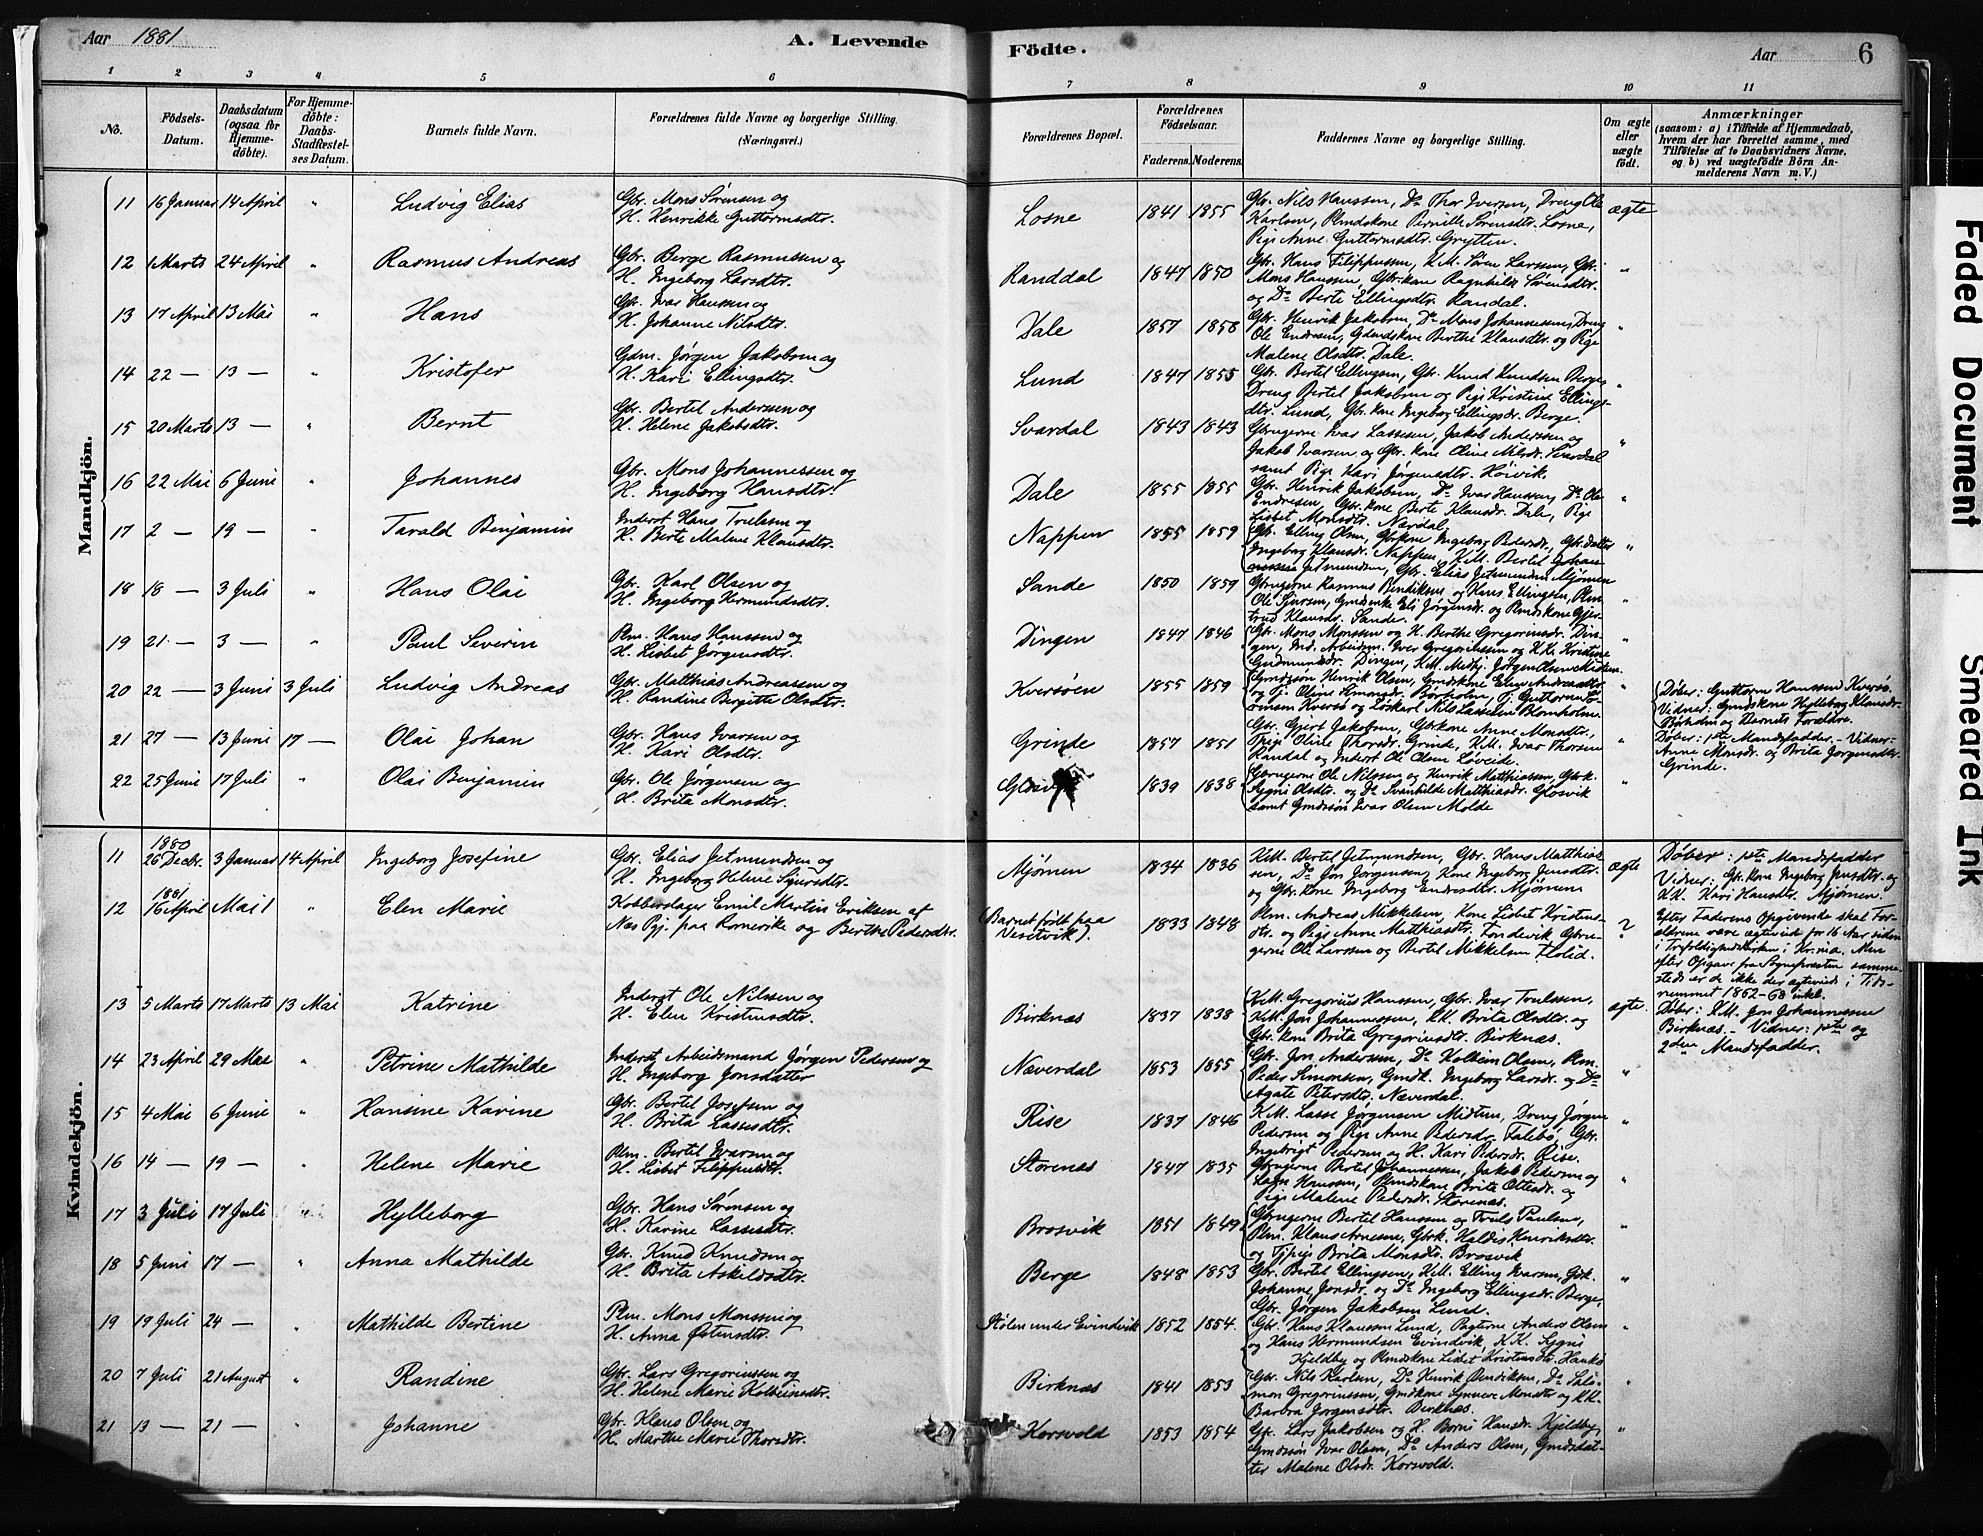 Aar 1881
A. Levende
Födte.
Aar
6
1 2 3 4 5 6 7 8 9 10 11
No.
Födsels-Datum.
Daabsdatum (ogsaa for Hjemme-döbte).
For Hjemme-döbte: Daabs-Stadfæstel-ses Datum.
Barnets fulde Navn.
Forældrenes fulde Navne og borgerlige Stilling.
(Næringsvei.)
Forældrenes Bopæl.
Forældrenes Födselsaar.
Faderens. Moderens.
Faddernes Navne og borgerlige Stilling.
Om ægte eller uægte födt.
Anmærkninger
(saasom: a) i Tilfælde af Hjemmedaab, hvem der har forrettet samme, med Tilföielse af to Daabsvidners Navne, og b) ved uægtefödte Börn Anmelderens Navn m. V.)
Mandkjön.
11 16 Januar 14 April " Ludvig Elias Gbr. Mons Sørensen og
H. Henrikke Guttormsdtr. Losne 1841 1855 Gbr. Nils Hanssen, Do Thor Iversen, Dreng Ole
Karlsen, Plmdskone Pernille Sørensdtr. Losne,
Pige Anne Guttormsdtr. Grytten. ægte
12 1 Marts 24 April " Rasmus Andreas Gbr. Berge Rasmussen og
H. Ingeborg Larsdtr. Randdal 1847 1850 Gbr. Hans Filippussen, K.M. Søren Larssen, Gbr.
Mons Hanssen, Gbr.kone Ragnhilde Sørensdtr.
og Do Berte Ellingsdtr. Randal. "
13 17 April 13 Mai " Hans Gbr. Ivar Hansen og
H. Johanne Nilsdtr. Dale 1857 1858 Gbr. Henrik Jakobsen, Do Mons Johannessen, Dreng
Ole Endresen, Gdmdskone Berthe Klausdtr. og Pige
Malene Olsdtr. Dale. "
14 22 — 13 — " Kristofer Gdm. Jørgen Jakobsen og
H. Kari Ellingsdtr. Lund 1847 1855 Gbr. Bertel Ellingsen, Gbr. Knud Knudsen Berge,
Dreng Bertel Jakobsen og Pige Kristine Ellings-
dtr. Lund, Gbr. kone Ingeborg Ellingsdr. Berge. "
15 20 Marts 13 — " Bernt Gbr. Bertel Anderssen og
H. Helene Jakobsdtr. Svardal 1843 1843 Gbrugerne Ivar Lassesen, Jakob Anderssen og
Jakob Ivarsen og Gbr. kone Oline Nilsdr. Svardal
samt Pige Kari Jørgensdtr. Høivik. "
16 22 Mai 6 Juni " Johannes Gbr. Mons Johannessen og
H. Ingeborg Hansdtr. Dale 1855 1855 Gbr. Henrik Jakobsen, Do Ivar Hanssen, Do Ole
Endresen, Gbr. kone Berte Klausdr. Dale, Pige
Lisbet Monsdtr. Nærdal. "
17 2 — 19 — " Tarald Benjamin Inderst Hans Trulssen og
H. Berte Malene Klausdtr. Nappen 1855 1859 Gbr. Elling Olsen, Gbr.kone Ingeborg Pedersdr., Gbr. datter
Ingeborg Klausdr. Nappen, K.M. Bertel Johan-
nessen Jetmundsen, Gbr. Elias Jetmundsen Mjømen "
18 18 — 3 Juli " Hans Olai Gbr. Karl Olsen og
H. Ingeborg Hermundsdtr. Sande 1850 1859 Gbrugerne Rasmus Bendiksen og Hans Ellingsen, Plm.
Ole Sjursen, Gmdenke Eli Jørgensdr. og Plmdskone Gjer-
trud Klausdr. Sande. "
19 21 — 3 — " Paul Severin Plm. Hans Hanssen og
H. Lisbet Jørgensdtr. Dingen 1847 1846 Gbr. Mons Monssen og H. Berthe Gregoriusdr. Din-
gen, Ind. Arbeidsm. Iver Gregoriussen og K.K. Kristine
Gudmundsdr. Dingen, K.M. Medhj. Jørgen Olsen Midtun "
20 22 — 3 Juni 3 Juli Ludvig Andreas Gbr. Matthias Andreassen og
H. Randine Birgitte Olsdtr. Kversøen 1855 1859 Gmdssøn Henrik Olsen, Gmdskone Elen Andreasdtr.
og Tj. Oline Simonsdr. Børholm, Tj. Guttorm Sø-
rensen Kversø og Løskarl Nils Lassesen Blomholm. " Døber: Guttorm Hanssen Kversø.
Vidner: Gmdskone Hylleborg Klausdr.
Børholm og Barnets Forældre.
21 27 — 13 Juni 17 — Olai Johan Gbr. Hans Ivarsen og
H. Kari Olsdtr. Grinde 1857 1851 Gbr. Gjert Jakobsen, Gbrkone Anne Monsdtr.,
Pige Oline Thorsdr. Grinde, K.M. Ivar Thorsen
Randal og Inderst Ole Olsen Løveide. " Døber: 1ste Mandsfadder. — Vidner:
Anne Monsdr. og Brita Jørgensdtr.
Grinde.
22 25 Juni 17 Juli Olai Benjamin Gbr. Ole Jørgensen og
H. Brita Monsdtr. 1839 1838 Gbrugerne Ole Nilssen og Henrik Matthiassen, Gbrk.
Sygni Olsdtr. og Do Svanhilde Matthiasdr. Glosvik
samt Gmdssøn Ivar Olsen Molde "
Kvindekjön.
11 1880 26 Decbr. 3 Januar 14 April Ingeborg Josefine Gbr. Elias Jetmundsen og
H. Ingeborg Helene Sjursdtr. Mjømen 1834 1836 K.M. Bertel Jetmundsen, Gbr. Hans Matthias-
sen, Do Jon Jørgensen, Kone Ingeborg Jensdtr.
og Gbr. kone Ingeborg Endresdtr. Mjømen ægte Døber: 1ste Mandsfadder
Vidner: Gbr. kone Ingeborg Jensdtr. og
K.K. Kari Hansdtr. Mjømen.
12 1881 16 April Mai 1 " Elen Marie Kobberslager Emil Martin Eriksen af
Næs Pgj. paa Romerike og Berthe Pedersdtr. (Barnet født paa
Vesetvik). 1833 1848 Plm. Andreas Mikkelsen, Kone Lisbet Kristens-
dtr. og Pige Anne Matthiasdtr. Tøndevik, Gbru-
gerne Ole Larssen og Bertel Mikkelsen Flolid. ? Efter Faderens Opgivende skal For-
ældrene være ægteviet for 16 Aar siden
i Trefoldighedskirken i Kr.nia. Men
efter Opgave fra Sognepræsten samme-
steds er de ikke der ægteviede i Tids-
rummet 1862-68 inkl.
13 5 Marts 17 Marts 13 Mai Katrine Inderst Ole Nilssen og
H. Elen Kristensdtr. Birknæs 1837 1838 K.M. Gregorius Hanssen, Gbr. Ivar Trulssen,
K.M. Jon Johannessen, K.K. Brita Olsdtr. og
Gbr. kone Brita Gregoriusdtr. Birknæs. ægte. Døber: K.M. Jon Johannessen
Birknæs. — Vidner: 1ste og
2den Mandsfadder.
14 23 April 29 Mai " Petrine Mathilde Inderst Arbeidsmand Jørgen Pedersen og
H. Ingeborg Jonsdatter Næverdal 1853 1855 Gbr. Jon Andersen, Do Kolbein Olsen, Plm.
Peder Simonsen, Gmdk. Ingeborg Larsdr. og Do
Agate Petersdtr. Næverdal. "
15 4 Mai 6 Juni " Hansine Karine Gbr. Bertel Josefsen og
H. Brita Lassesdtr. Rise 1837 1846 K.M. Lasse Jørgensen Midtun, Dreng Jørgen
Pedersen og Pige Anne Pedersdr. Talebø, Gbr.
Ingebrigt Pedersen og H. Kari Pedersdr. Rise. "
16 14 — 19 — " Helene Marie Plm. Bertel Ivarsen og
H. Lisbet Filippusdtr. Storenæs 1847 1835 Gbrugerne Bertel Johannessen, Jakob Pedersen og
Hanssen, Plmdskone Brita Ottesdr. og
Pige Malene Pedersdr. Storenæs.
17 3 Juli 17 Juli Hylleborg Gbr. Hans Sørensen og
H. Karine Lassesdtr. Brosvik 1851 1849 Gbrugerne Bertel Hanssen og Truls Paulsen,
Plm. Klaus Arnesen, Gbrk. Haldis Henriksdtr.
og Tjpige Brita Monsdtr. Brosvik "
18 5 Juni 17 — " Anna Mathilde Gbr. Knud Knudsen og
H. Brita Askildsdtr. Berge 1848 1853 Gbr. Bertel Ellingsen, K.M. Elling Ivarsen, Gbk.
Johanne Jonsdr. og Do Ingeborg Ellingsdr. Berge,
Gbr. Jørgen Jakobsen Lund. "
19 19 Juli 24 — " Mathilde Bertine Plm. Mons Monssen og
H. Anna Østensdtr. Stølen under Evindvik 1852 1854 Gbr. Hans Klaussen Lund, Pagterne Anders Olsen
og Hans Hermundsen Evindvik, K.K. Sygni
Kjeldby og Plmdskone Lisbet Kristensdtr. Hankø "
20 7 Juli 21 August " Randine Gbr. Lars Gregoriussen og
H. Helene Marie Kolbeinsdtr. Birknæs 1841 1853 Gbr. Nils Karlsen, Do Henrik Bendiksen, Do Salo-
mon Gregoriussen, Gmdkone Synneve Monsdtr. og K.K.
Barbra Jørgensdtr. Birknæs. "
21 13 — 21 — Johanne Gbr. Klaus Olsen og
H. Marthe Marie Thorsdtr. Korsvold 1853 1854 Gbr. Lars Jakobsen og H. Hansdr. Kjeldby,
Gmdssøn Ivar Olsen, Do Anders Olsen, Gmdsdat-
ter Malene Olsdr. Korsvold. "
Faded Document
Smeared Ink